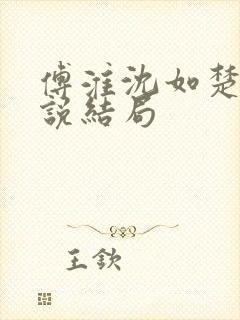 傅淮沈如楚
說結局
王欽